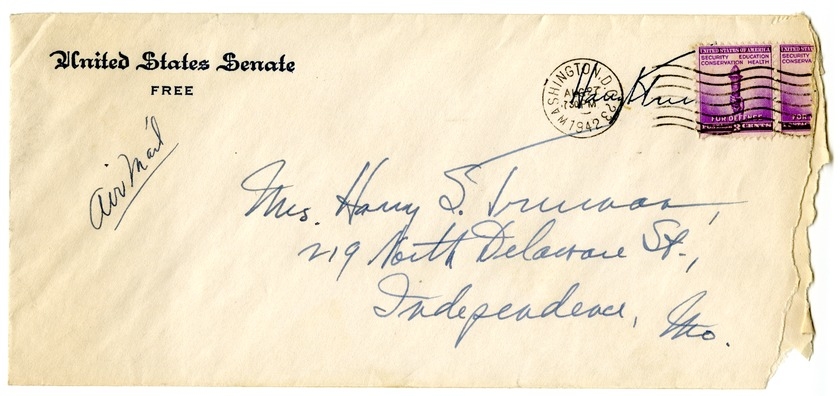 United States Senate
FREE
Air Mail
WASHINGTON, D.C. 23
7 30 PM
1942
Harry
UNITED STATES OF AMERICA
SECURITY EDUCATION
CONSERVATION HEALTH
FOR DEFENSE
3 CENTS
UNITED STAT
SECURITY
CONSERVA
FOR
Mrs. Harry S. Truman,
219 North Delaware St.,
Independence, Mo.